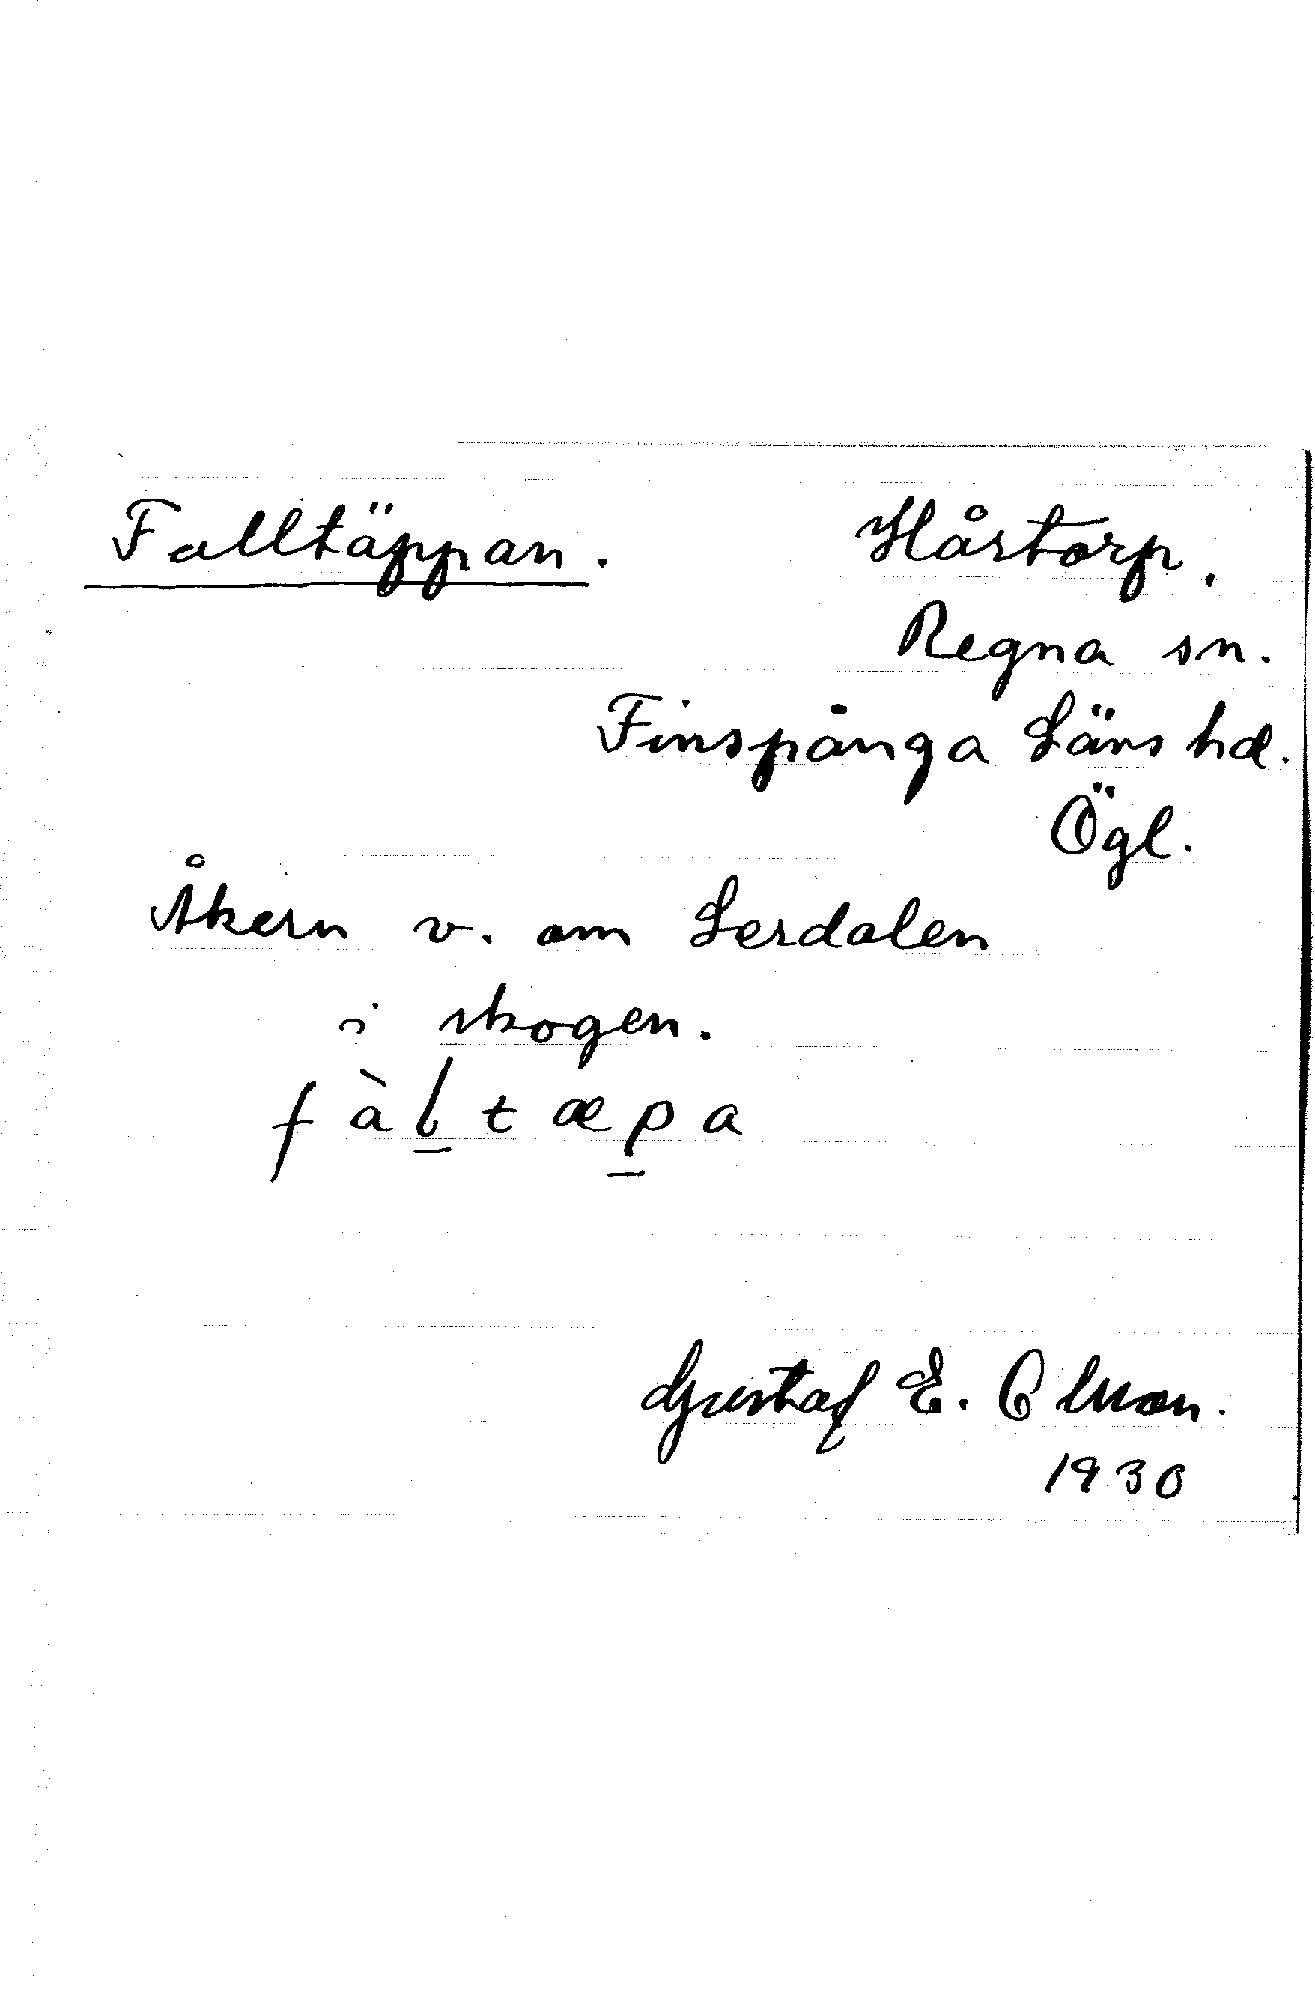 Falltäppan. Hårstorp.
Regna sn.
Finspånga Läns hd.
Ögl.
Åkern v. om Lerdalen
i skogen.
fàl̠tæp̠a
Gustaf E. Olsson.
1930